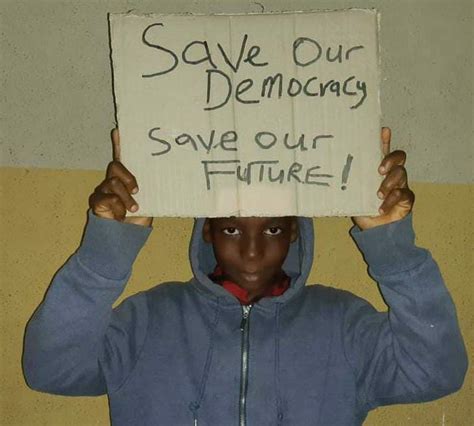 Save Our
Democracy
Save our
FUTURE!